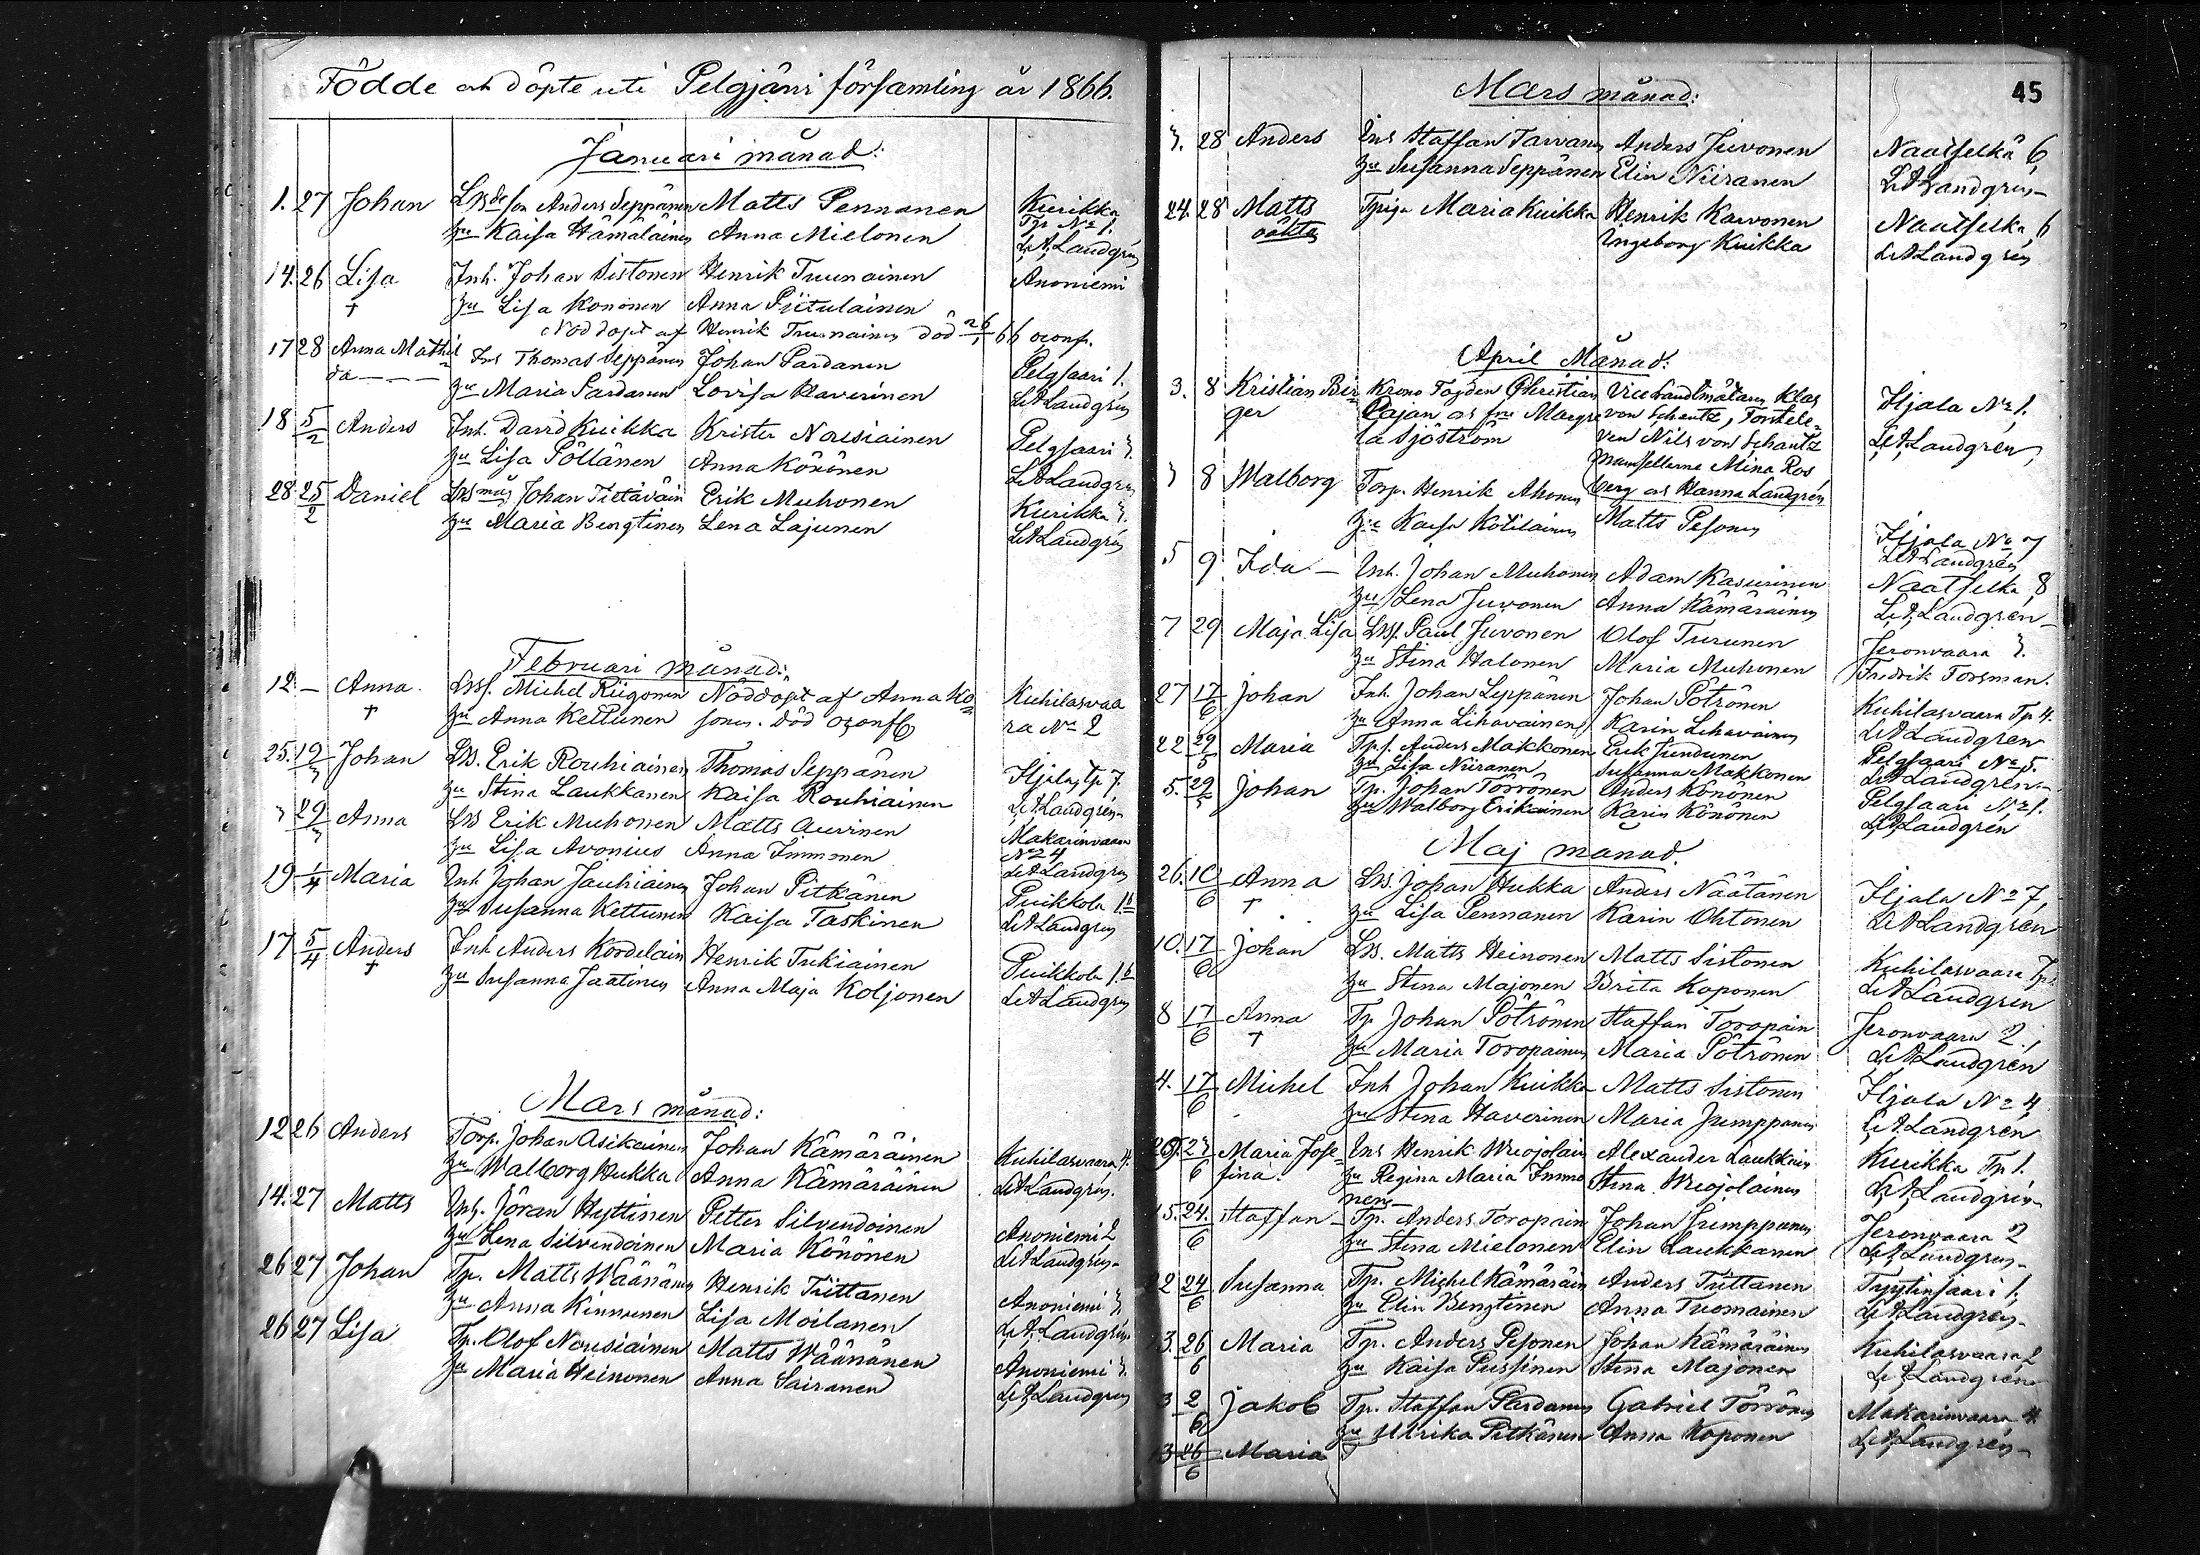 Födde och döpte uti Pelgjärvi församling år 1866.
Januari månad:
1. 27 Johan Lbdeson Anders Seppänen Matts Pennanen Kurikka
hu Kaisa Hämäläinen Anna Mielonen Tp No 1.
L.A. Landgrén
14. 26 Lisa Inh. Johan Sistonen Henrik Tuunainen Anoniemi
† hu Lisa Kononen Anna Piitulainen
Nöddöpt af Henrik Tuunainen död 26/1 66 oconf.
17 28 Anna Mathil Inh Thomas Seppänen Johan Pardanen Pelgsaari 1.
da hu Maria Pardanen Lovisa Haverinen L.A. Landgrén
18 5/2 Anders Inh. David Kuikka Krister Nousiainen Pelgsaari 3.
hu Lisa Pöllänen Anna Könönen L.A. Landgrén
28 25/2 Daniel Lbs måg Johan Tiitäväin Erik Muhonen Kurikka 3.
hu Maria Bengtinen Lena Lajunen L.A. Landgrén
Februari månad:
12 – Anna Lbs. Michel Riigonen Nöddöpt af Anna Ko Kuhilasvaa
† hu Anna Kettunen sonen. död oconf. ra No 2
25. 19/3 Johan Lb. Erik Rouhiainen Thomas Seppänen Hjala, Tp 7.
hu Stina Laukkanen Kaisa Rouhiainen L.A. Landgrén
3 29/3 Anna Lb Erik Muhonen Matts Auvinen Makarinvaara
hu Lisa Avonius Anna Immonen No 24
L.A. Landgrén
19 1/4 Maria Inh Johan Jauhiainen Johan Pitkänen Puikkola 1.b
hu Susanna Kettunen Kaisa Taskinen L.A. Landgrén
17 5/4 Anders Inh Anders Kordelain Henrik Tukiainen Puikkola 1.b
† hu Susanna Jaatinen Anna Maja Koljonen L.A. Landgrén
Mars månad:
12 26 Anders Torp. Johan Asikainen Johan Kämäräinen Kuhilasvaara 4.
hu Walborg Hukka Anna Kämäräinen L.A. Landgrén.
14. 27 Matts Inh. Jöran Hyttinen Petter Silvendoinen Anoniemi 2
hu Lena Silvendoinen Maria Könönen L.A. Landgrén
26 27 Johan Tp. Matts Wäänänen Henrik Tiittanen Anoniemi 3
hu Anna Kinnunen Lisa Moilanen L.A. Landgrén
26 27 Lisa Tp. Olof Nousiainen Matts Wäänänen Anoniemi 3.
hu Maria Heinonen Anna Sairanen L.A. Landgrén
Mars månad:
45
3. 28 Anders Inh Staffan Tarvanen Anders Juvonen Naatselkä 6
hu Susanna Seppänen Elin Niiranen L.A. Landgrén
24. 28 Matts Tpiga Maria Kuikka Henrik Karvonen Naatselka 6
oäkta Ingeborg Kuikka L.A. Landgrén
April Månad:
3. 8 Kristian Bir Krono Fogden Christian Vice Landtmätaren Klas Hjala No 1.
ger Cajan och fru Margre von Schantz, Forstele- L.A. Landgrén
ta Sjöström ven Nils von Schantz
mamsellerne Mina Ros
3 8 Walborg Torp. Henrik Ahonen berg och Hanna Landgrén
hu Kaisa Kotilainen Matts Pesonen Hjala No 7
L.A. Landgrén
5 9 Ida – Inh. Johan Muhonen Adam Kasurinen Naatselka 8
hu Lena Juvonen Anna Kämäräinen L.A. Landgrén
7 29 Maja Lisa Lbs. Paul Juvonen Olof Turunen Jeronvaara 3.
hu Stina Halonen Maria Muhonen Fredrik Forsman.
27 17/6 Johan Inh. Johan Leppänen Johan Pötrönen Kuhilasvaara Tp 4.
hu Anna Lihavainen Karin Lihavainen L.A. Landgrén
22 29/5 Maria Tps. Anders Makkonen Erik Jundunen Pelgsaari No 5.
hu Lisa Niiranen Susanna Makkonen L.A. Landgrén
5. 29/5 Johan Tp. Johan Törrönen Anders Könönen Pelgsaari No 1.
hu Walborg Erikainen Karin Könönen L.A. Landgrén
Maj månad.
26. 10/6 Anna Lb. Johan Hukka Anders Näätänen Hjala No 7,
† hu Lisa Pennanen Karin Ohtonen L.A. Landgrén
10. 17/6 Johan Lb. Matts Heinonen Matts Sistonen Kuhilasvaara Tp.
hu Stina Majonen Brita Koponen L.A. Landgrén
8 17/6 Anna Tp Johan Pötrönen Staffan Toropain Jeronvaara 2.
† hu Maria Toropainen Maria Pötrönen L.A. Landgrén
4. 17/6 Michel Inh Johan Kuikka Matts Sistonen Hjala No 4
hu Stina Haverinen Maria Jumppanen L.A. Landgrén
23/6 Maria Jose- Inh Henrik Wiojolain Alexander Laukkain Kurikka Tp 1.
fina. hu Regina Maria Immo Stina Wiojolainen L.A. Landgrén
nen
15. 24/6 Staffan Tp. Anders Toropain Johan Jumppanen Jeronvaara 2
hu Stina Mielonen Elin Laukkanen L.A. Landgrén
22 24/6 Susanna Tp. Michel Kämäräin Anders Tiittanen 1.
hu Elin Bengtinen Anna Tuomainen L.A. Landgrén
3. 26/6 Maria Tp. Anders Pesonen Johan Kämäräinen Kuhilasvaara 2
hu Kaisa Pussinen Stina Majonen L.A. Landgrén
3 2/6 Jakob Tp. Staffan Pardanen Gabriel Törrönen Makarinvaara 4
hu Ulrika Pitkänen Anna Koponen L.A. Landgrén
3 26/6 Maria